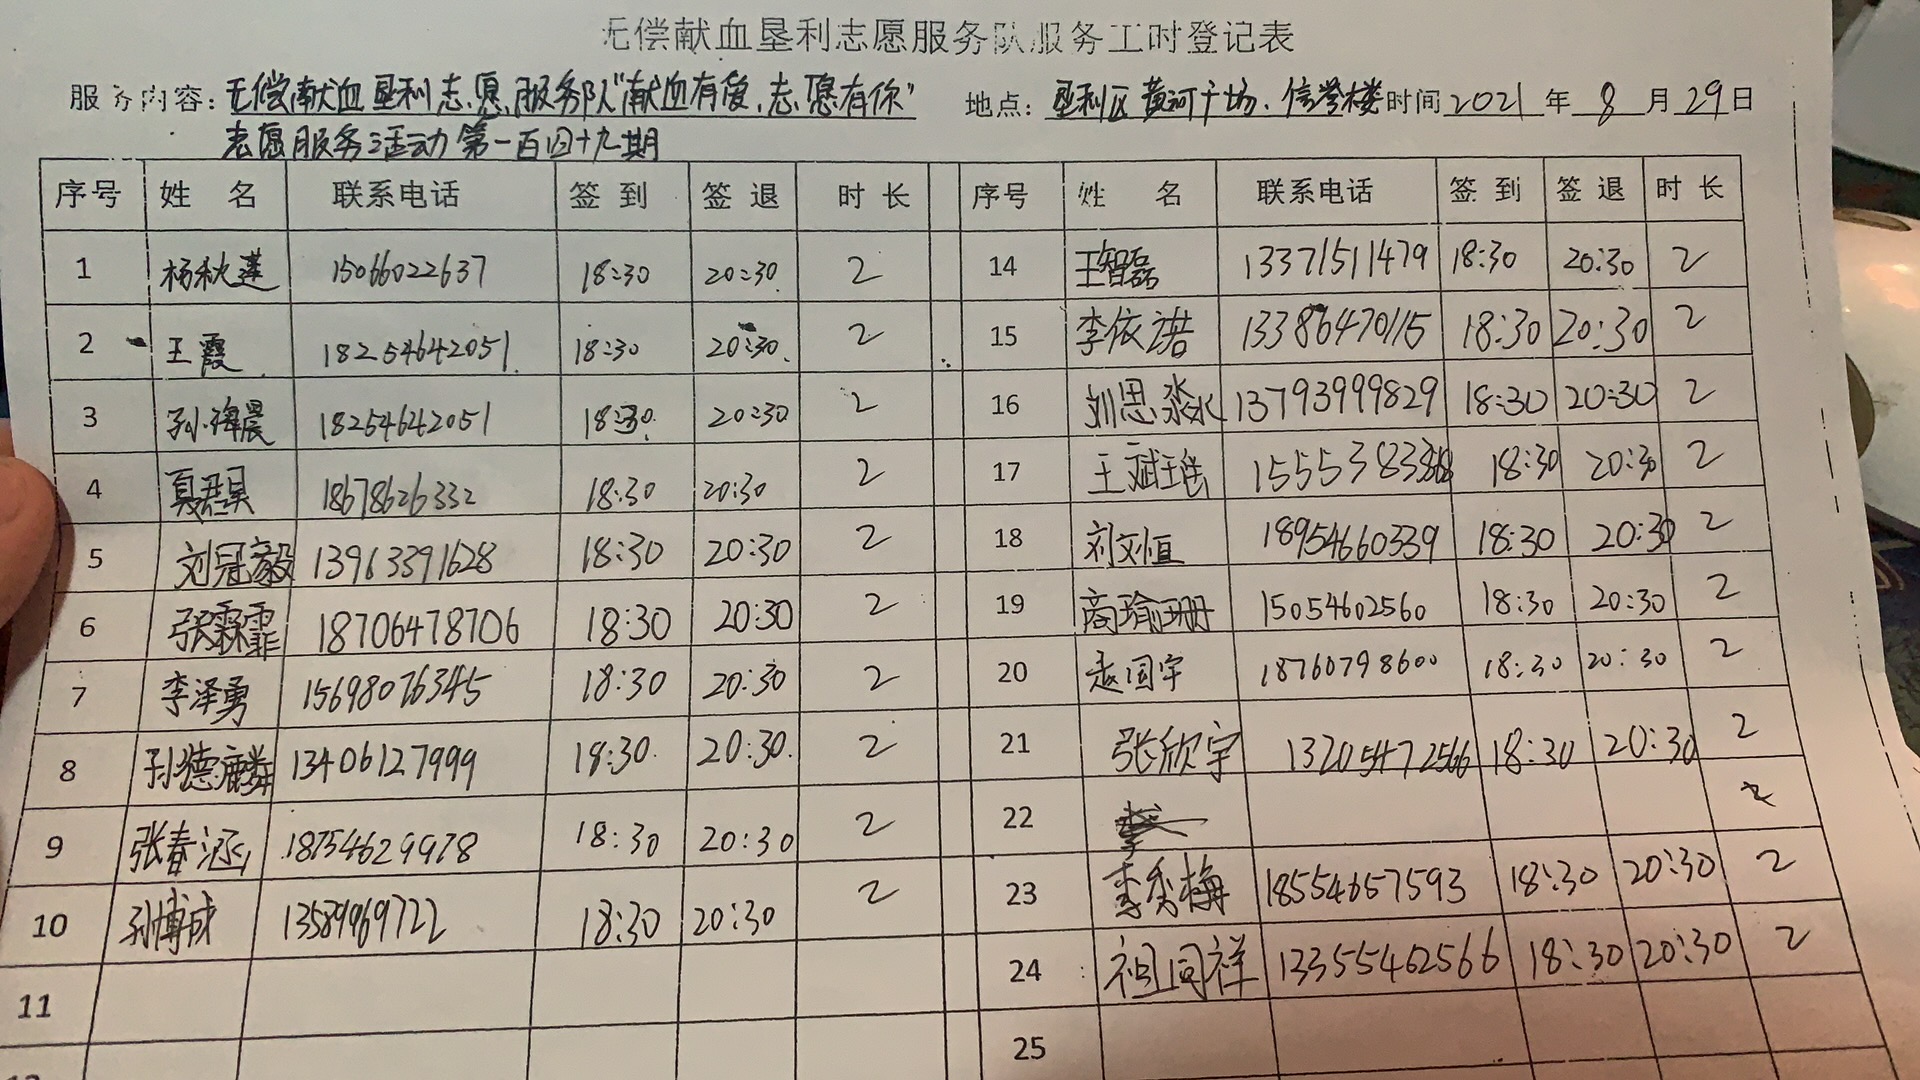 无偿献血垦利志愿服务队服务工时登记表
服务内容：无偿献血垦利志愿服务队"献血有爱，志愿有你" 地点：垦利区黄河广场、信誉楼 时间 2021 年 8 月 29 日
志愿服务活动第一百四十九期
序号 姓 名 联系电话 签 到 签 退 时 长 序号 姓 名 联系电话 签 到 签 退 时 长
1 杨秋莲 15066022637 18:30 20:30 2 14 王智磊 13371511479 18:30 20:30 2
2 王霞 18254642051 18:30 20:30 2 15 李依诺 13386470115 18:30 20:30 2
3 孙海晨 18254642051 18:30 20:30 2 16 刘思淼 13793999829 18:30 20:30 2
4 夏君昊 18678626332 18:30 20:30 2 17 王斌瑶 18:30 20:30 2
5 刘冠毅 13963391628 18:30 20:30 2 18 刘文恒 18954660339 18:30 20:30 2
6 张霖霏 18706478706 18:30 20:30 2 19 商瑜珊 15054602560 18:30 20:30 2
7 李泽勇 15698076345 18:30 20:30 2 20 赵国宇 18760798600 18:30 20:30 2
8 孙德麟 13406127999 18:30 20:30 2 21 张欣宇 13205472566 18:30 20:30 2
9 张春涵 18754629978 18:30 20:30 2 22 2
10 孙博成 13589969722 18:30 20:30 2 23 李秀梅 18554657593 18:30 20:30 2
11 24 祖同祥 13355462566 18:30 20:30 2
25